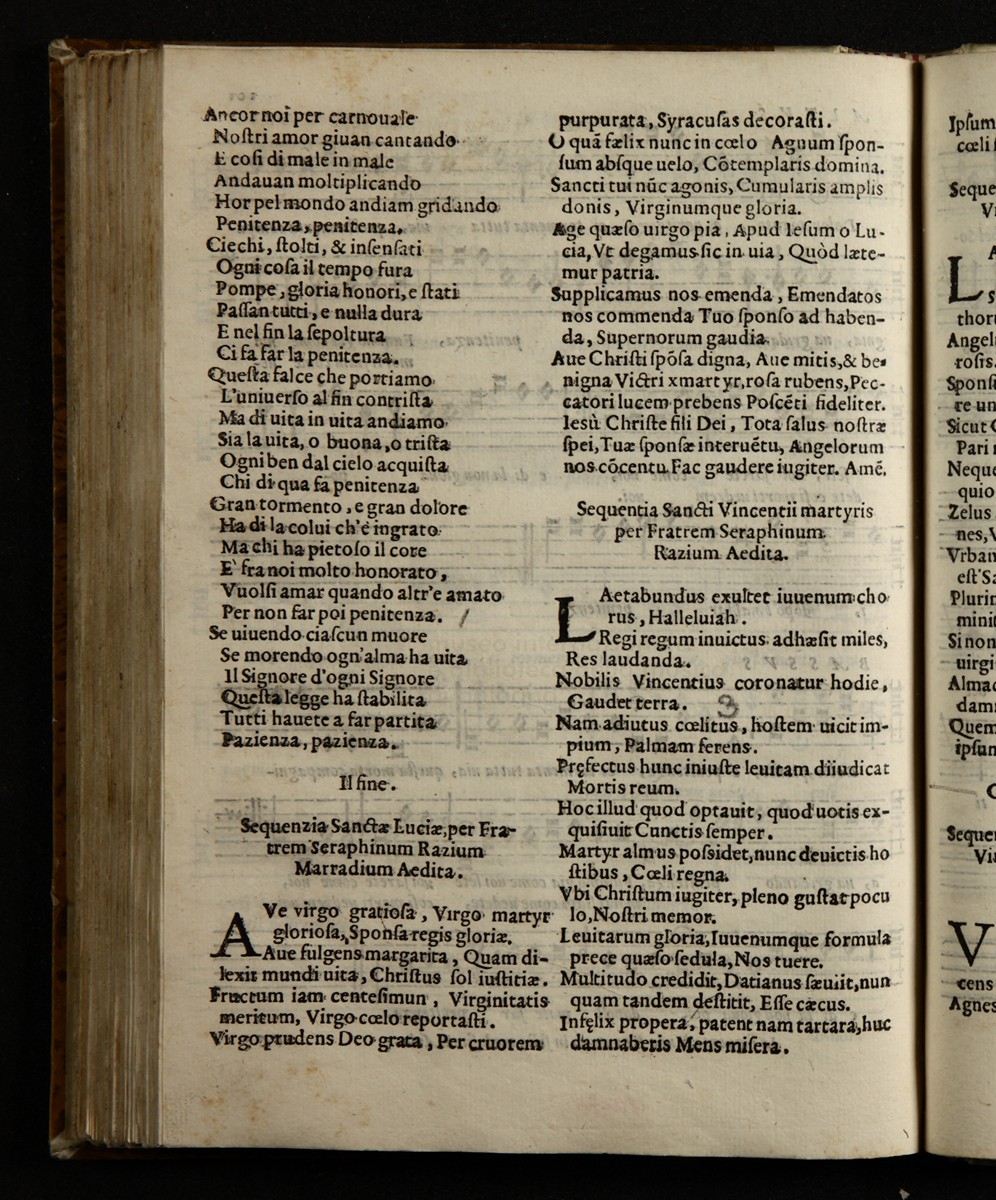 Ancor noi per carnouale
Noſtri amor giuan cantando
E coſi di male in male
Andauan moltiplicando
Hor pel mondo andiam gridando
Penitenza, penitenza.
Ciechi, ſtolti, & inſenſati
Ogni coſa il tempo fura
Pompe, gloria honori, e ſtati
Paſſan tutti, e nulla dura
E nel fin la ſepoltura
Ci fa far la penitenza.
Queſta falce che portiamo
L'uniuerſo al fin contriſta
Ma di uita in uita andiamo
Sia la uita, o buona, o triſta
Ogni ben dal cielo acquiſta
Chi di qua fa penitenza
Gran tormento, e gran dolore
Ha di la colui ch'è ingrato
Ma chi ha pietoſo il core
E' fra noi molto honorato,
Vuolſi amar quando altr'e amato
Per non far poi penitenza.
Se uiuendo ciaſcun muore
Se morendo ogn'alma ha uita
Il Signore d'ogni Signore
Queſta legge ha ſtabilita
Tutti hauete a far partita
Pazienza, pazienza.
Il fine.
Sequenzia Sanctæ Luciæ, per Fra-
trem Seraphinum Razium
Marradium Aedita.
AVe virgo gratioſa, Virgo martyr
glorioſa, Sponſa regis gloriæ.
Aue fulgens margarita, Quam di-
lexit mundi uita, Chriſtus ſol iuſtitiæ.
Fructum iam centeſimun, Virginitatis
meritum, Virgo cœlo reportaſti.
Virgo prudens Deo grata, Per cruorem
purpurata, Syracuſas decoraſti.
O quā fælix nunc in cœlo Agnum ſpon-
ſum abſque uelo, Cōtemplaris domina.
Sancti tui nūc agonis, Cumularis amplis
donis, Virginumque gloria.
Age quæſo uirgo pia, Apud Ieſum o Lu-
cia, Vt degamus ſic in uia, Quòd læte-
mur patria.
Supplicamus nos emenda, Emendatos
nos commenda Tuo ſponſo ad haben-
da, Supernorum gaudia.
Aue Chriſti ſpōſa digna, Aue mitis, & be-
nigna Victri xmartyr, roſa rubens, Pec-
catori lucem prebens Poſcēti fideliter.
Iesù Chriſte fili Dei, Tota ſalus noſtræ
ſpei, Tuæ ſponſæ interuētu, Angelorum
nos cōcentu Fac gaudere iugiter. Amē.
Sequentia Sancti Vincentii martyris
per Fratrem Seraphinum
Razium Aedita.
LAetabundus exultet iuuenum cho
rus, Halleluiah.
Regi regum inuictus adhæſit miles,
Res laudanda.
Nobilis Vincentius coronatur hodie,
Gaudet terra.
Nam adiutus cœlitus, hoſtem uicit im-
pium, Palmam ferens.
Pręfectus hunc iniuſte leuitam diiudicat
Mortis reum.
Hoc illud quod optauit, quod uotis ex-
quiſiuit Cunctis ſemper.
Martyr almus poſsidet, nunc deuictis ho
ſtibus, Cœli regna.
Vbi Chriſtum iugiter, pleno guſtat pocu
lo, Noſtri memor.
Leuitarum gloria, Iuuenumque formula
prece quæſo ſedula, Nos tuere.
Multitudo credidit, Datianus ſæuiit, nun
quam tandem deſtitit, Eſſe cæcus.
Infęlix propera, patent nam tartara, huc
damnaberis Mens miſera.
Ipſum
cœli
Seque
Vi
A
L
s
thoru
Angel
roſis.
Sponſ
re un
Sicut
Pari
Neque
quio
Zelus
nes, V
Vrban
eſt Sa
Plurin
minit
Si non
uirgi
Almac
damn
Quem
ipſun
Seque
Vi
V
cens
Agnes